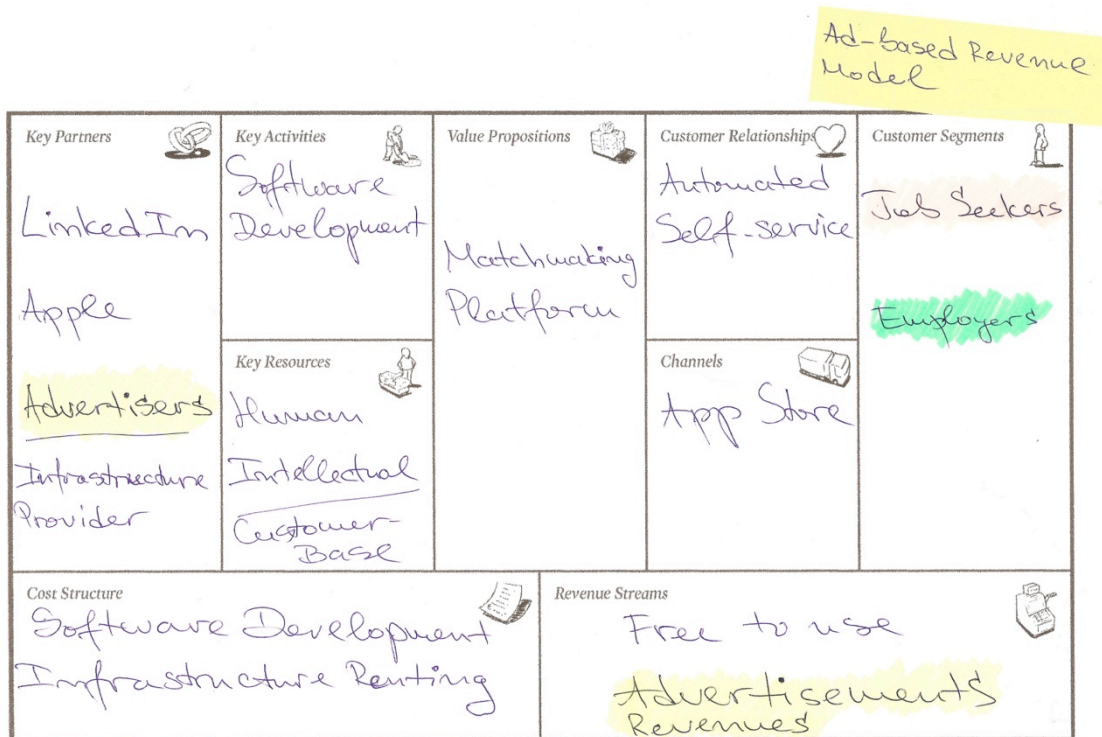 Ad-based Revenue
Model
Key Partners
LinkedIn
Apple
Advertisers
Infrastructure
Provider
Key Activities
Software
Development
Key Resources
Human
Intellectual
Customer-
Base
Value Propositions
Matchmaking
Platform
Customer Relationships
Automated
Self-service
Channels
App Store
Customer Segments
Job Seekers
Employers
Cost Structure
Software Development
Infrastructure Renting
Revenue Streams
Free to use
Advertisements
Revenues